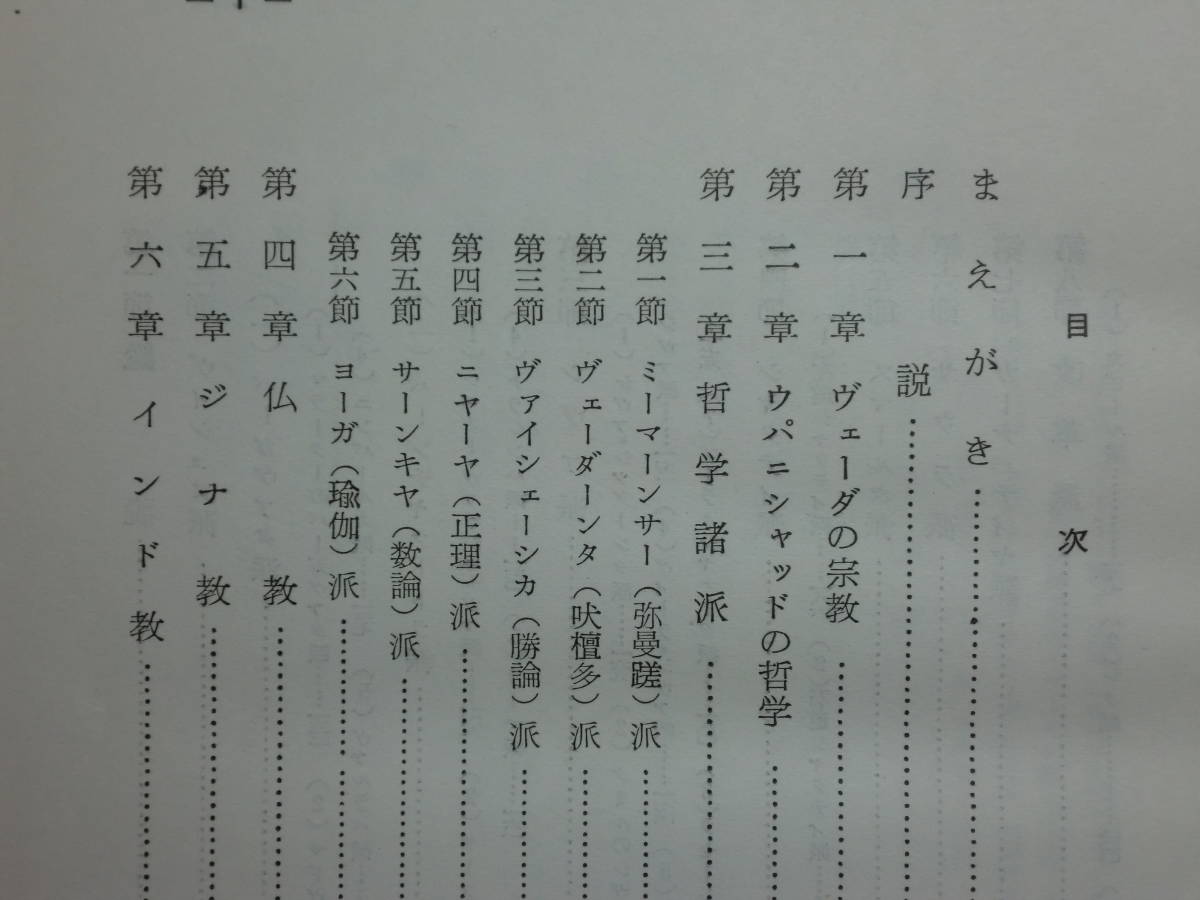 目次
まえがき
序説
第一章 ヴェーダの宗教
第二章 ウパニシャッドの哲学
第三章 哲学諸派
第一節 ミーマーンサー(弥曼蹉)派
第二節 ヴェーダーンタ(吠檀多)派
第三節 ヴァイシェーシカ(勝論)派
第四節 ニヤーヤ(正理)派
第五節 サーンキヤ(数論)派
第六節 ヨーガ(瑜伽)派
第四章 仏教
第五章 ジナ教
第六章 インド教